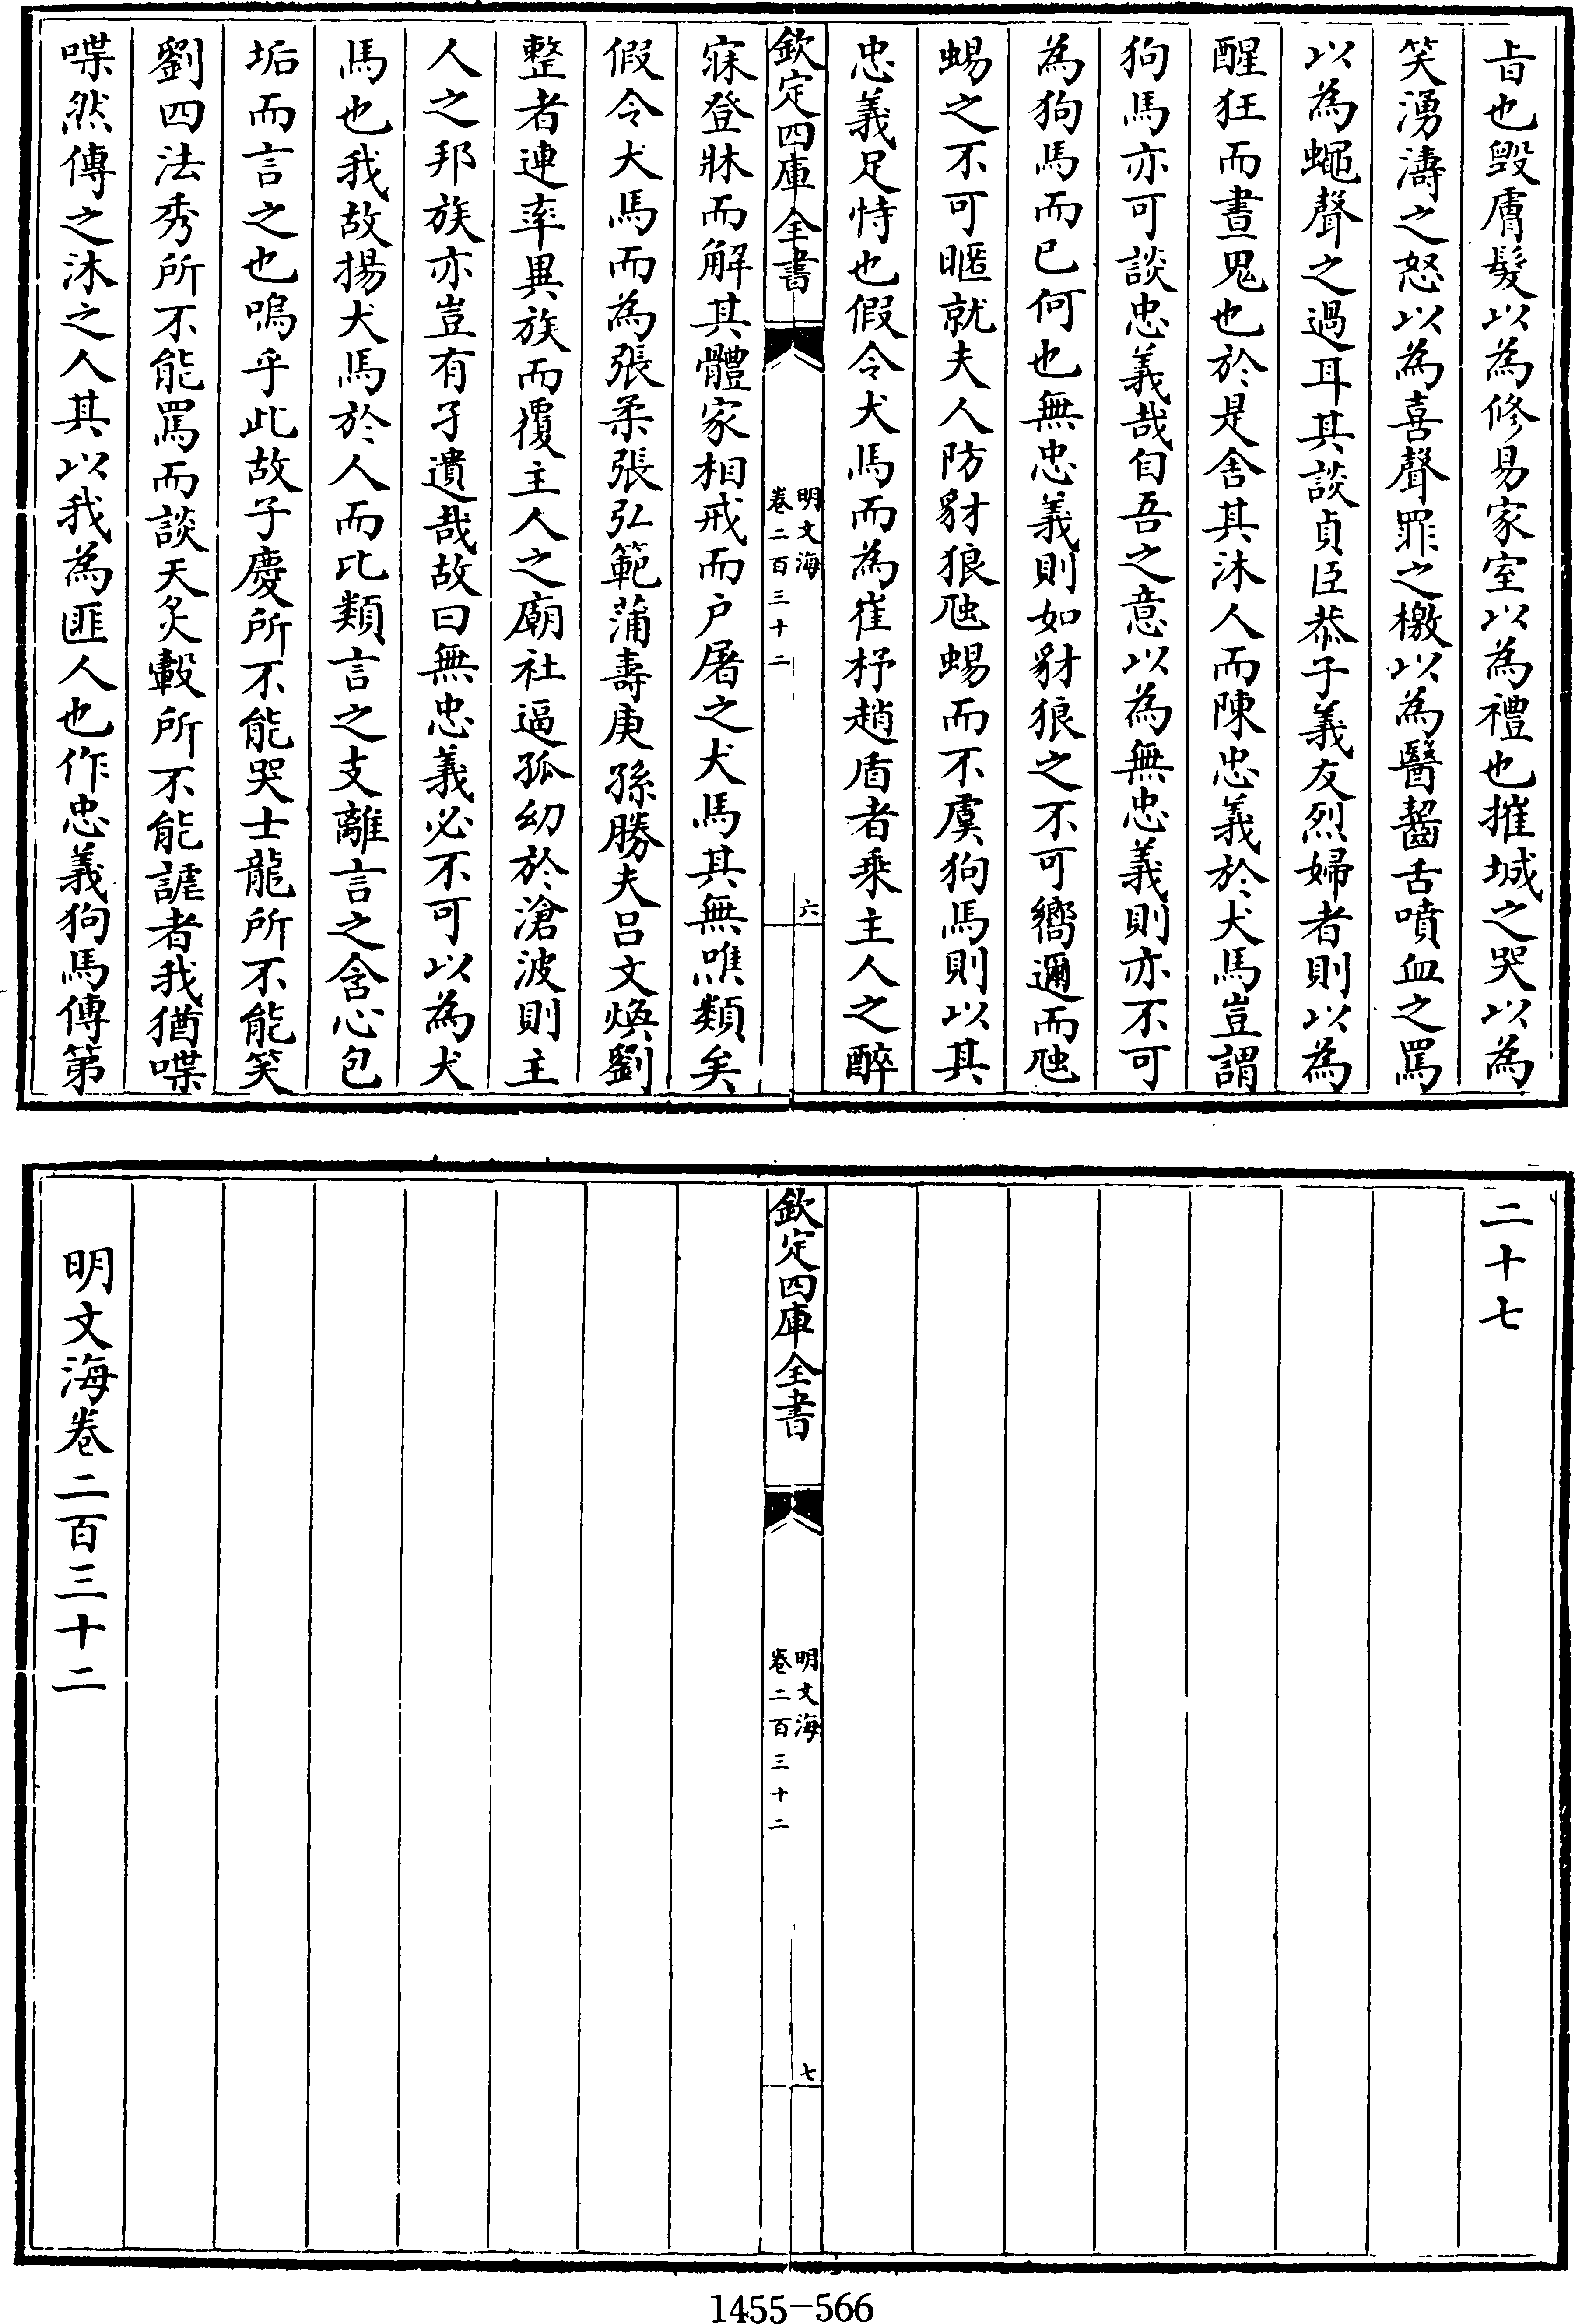 㫖也毁膚髮以為修易家室以為禮也摧城之哭以為
笑湧濤之怒以為喜聲罪之檄以為醫齧舌噴血之罵
以為蠅聲之過耳其談貞臣恭子義友烈婦者則以為
醒狂而晝鬼也於是舍其沐人而陳忠義於犬馬豈謂
狗馬亦可談忠義哉自吾之意以為無忠義則亦不可
為狗馬而已何也無忠義則如豺狼之不可嚮邇而虺
蜴之不可暱就夫人防豺狼虺蜴而不虞狗馬則以其
忠義足恃也假令犬馬而為崔杼趙盾者乘主人之醉
欽定四庫全書
明文海
卷二百三十二
六
寐登牀而解其體家相戒而户屠之犬馬其無噍類矣
假令犬馬而為張柔張弘範蒲壽庚孫勝夫呂文煥劉
整者連率異族而覆主人之廟社逼孤幼於滄波則主
人之邦族亦豈有孑遺哉故曰無忠義必不可以為犬
馬也我故揚犬馬於人而比類言之支離言之含心包
垢而言之也嗚乎此故子慶所不能哭士龍所不能笑
劉四法秀所不能罵而談天炙轂所不能謔者我猶喋
喋然傳之沐之人其以我為匪人也作忠義狗馬傳第
二十七
欽定四庫全書
明文海
卷二百三十二
七
明文海卷二百三十二
1455-566